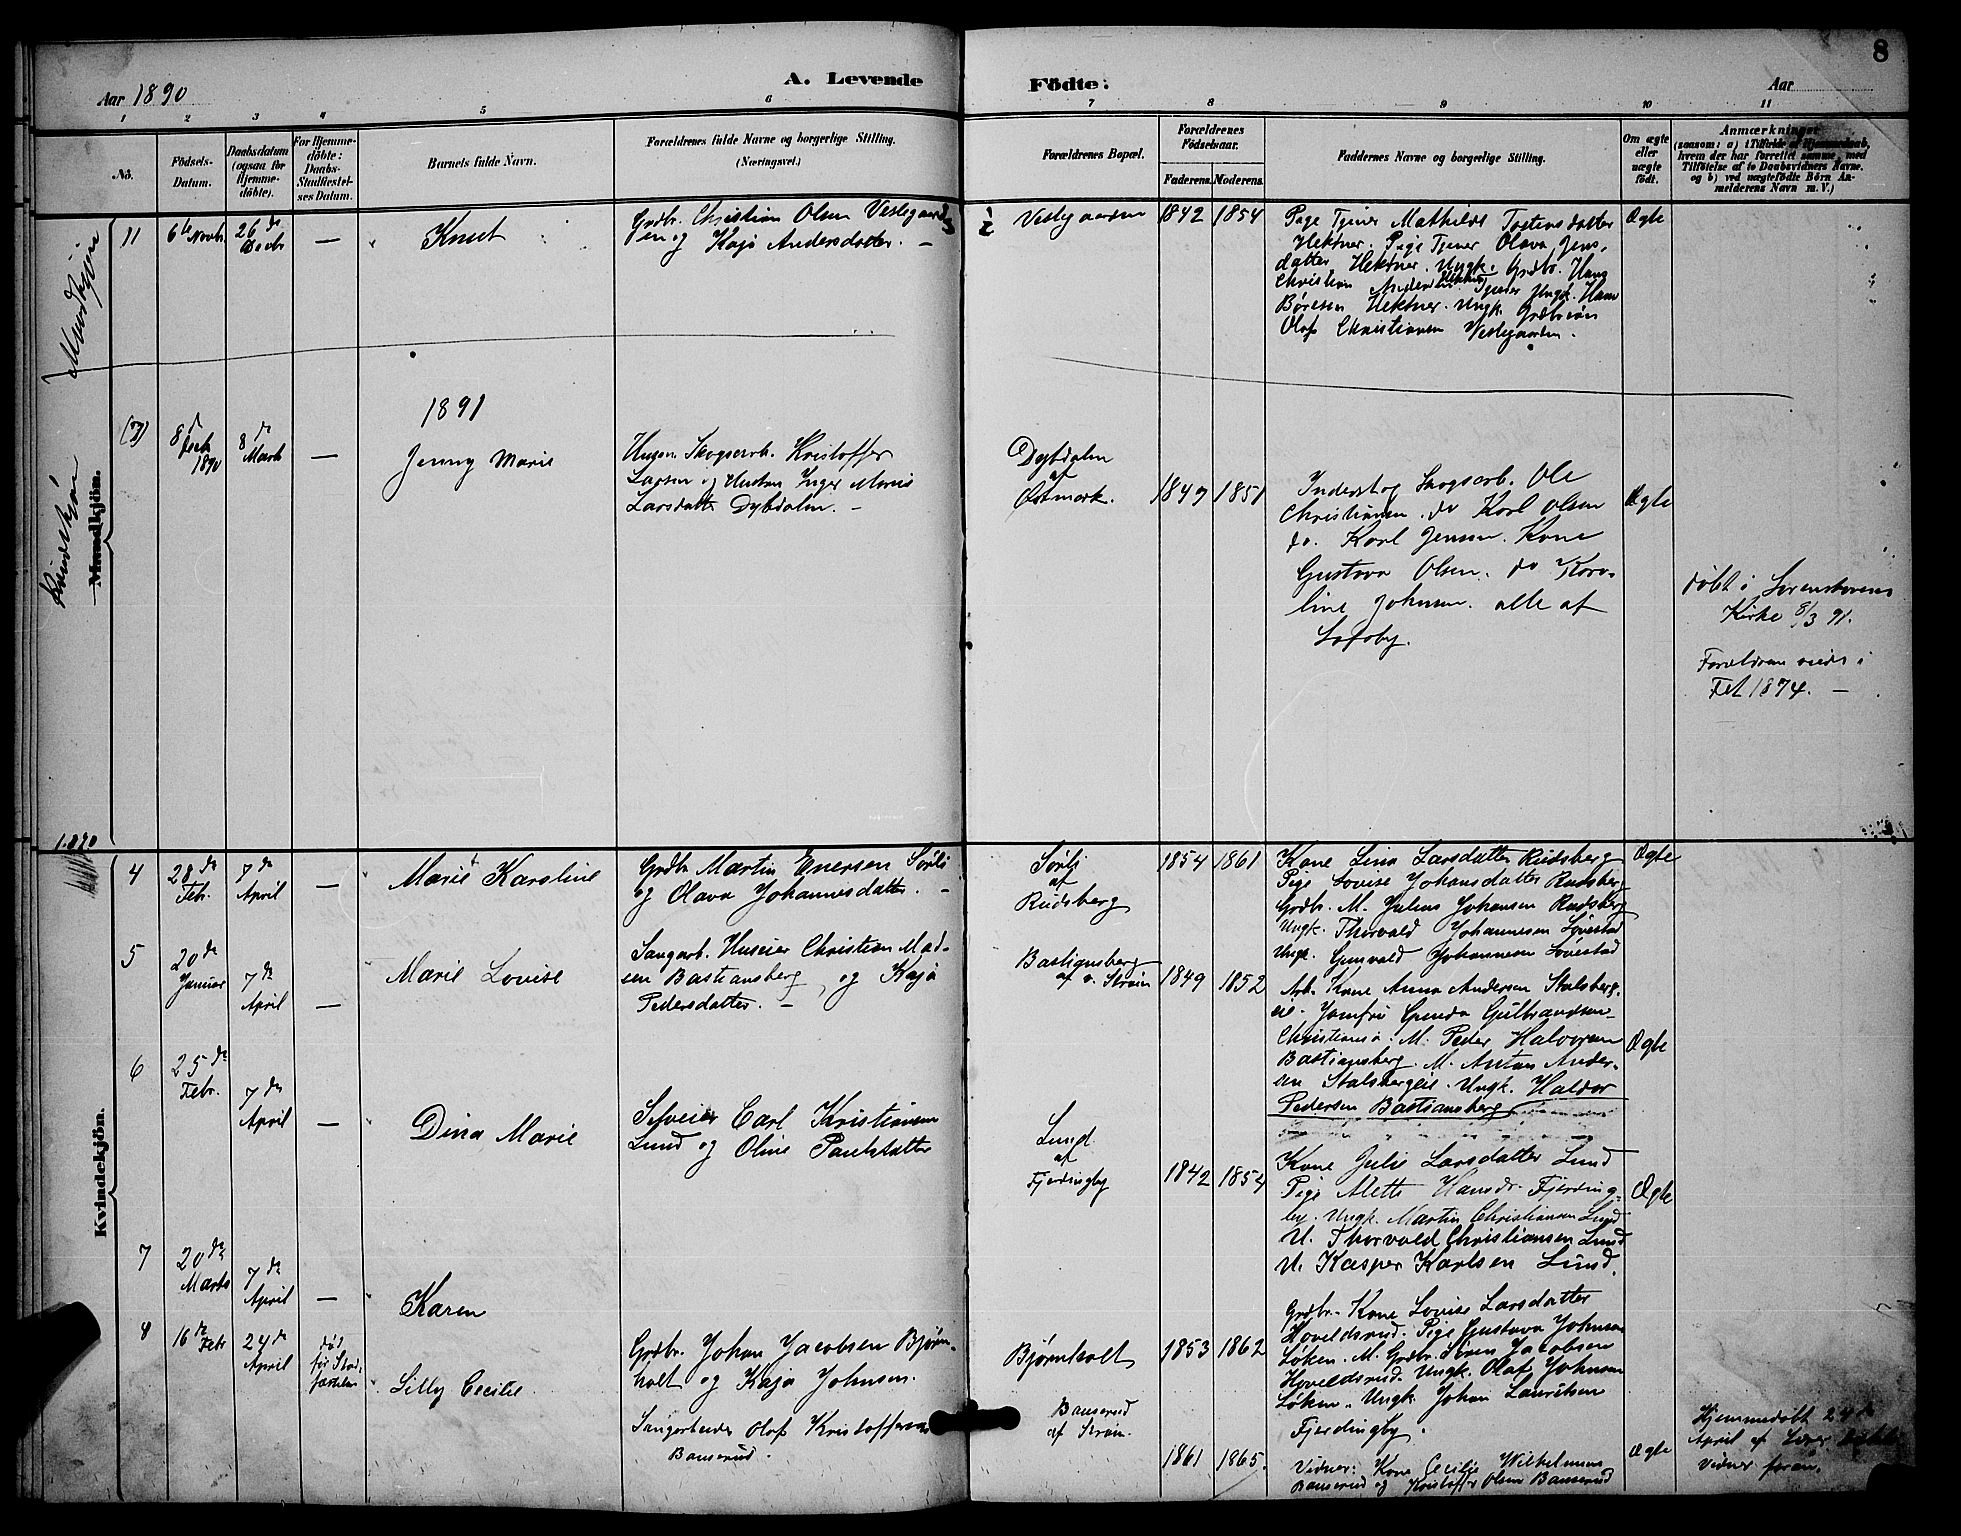 8
Aar 1890
A. Levende
Födte:
Aar
1 2 3 4 5 6 7 8 9 10 11
No.
Födsels-
Datum.
Daabsdatum
(ogsaa for
Hjemme-
döbte).
For Hjemme-
döbte:
Daabs-
Stadfæstel-
ses Datum.
Barnets fulde Navn.
Forældrenes fulde Navne og borgerlige Stilling.
(Næringsvei.)
Forældrenes Bopæl.
Forældrenes
Födselsaar.
Faderens. Moderens.
Faddernes Navne og borgerlige Stilling.
Om ægte
eller
uægte
födt.
Anmærkninger
(saasom: a) i Tilfælde af Hjemmedaab,
hvem der har forrettet samme, med
Tilföielse af to Daabsvidners Navne,
og b) ved uægtefödte Börn An-
melderens Navn m. V.)
Mandkjön
11
6te Novbr.
26 de
Decbr
—
Knut
Grdbr. Christian Olsen Vestegaard-
en og Kaja Andersdatter. —
Vestegaarden
1842 1854
Pige Tjener Mathilde Tostensdatter
Hektner. Pige Tjener Olava Jens-
datter Hektner. Ungk. Grdbr. Hans
Christian Andersen Hektner Tjener Ungk. Hans
Børesen Hektner. Ungk. Grdbrsøn
Olaf Christiansen Vestegaarden.
Ægte
1891
Kvindekjön
Mandkjön.
(7)
8 d
Decb
1890
8 d
Marts
—
Jenny Marie
Husm. Skogsarb. Kristoffer
Larsen og Hustru Inger Marie
Larsdatter Dybdalen. —
Dybdalen
af
Østmark.
1849 1851
Inderst og Skogsarb. Ole
Christiansen. do Karl Olsen
do. Karl Jensen. Kone
Gustava Olsen. do Karo-
line Johnsen. alle af
Losby.
Ægte
døbt i Lørenskovens
Kirke 8/3 91.
Forældrene viede i
Fet 1874. —
1890
Kvindekjön.
4
28 de
Febr.
7 de
April
—
Marie Karoline
Grdbr Martin Enersen Sörli
og Olava Johannesdatter. —
Sörli
af
Rudsberg
1854 1861
Kone Lina Larsdatter Rudsberg
Pige Lovise Johansdatter Rudsberg
Grdbr. M. Julius Johansen Rudsberg
Ungk. Thorvald Johannesen Løvestad
Ungk. Gunvald Johannesen Løvestad
Ægte
5
20 de
Januar
7 de
April
—
Marie Lovise
Saugarb. Huseier Christian Mad-
sen Bastiansberg, og Kaja
Pedersdatter. —
Bastiansberg
af n. Strøm
1849 1852
Arb. Kone Anna Andersen Stalsberg-
eie. Jomfru Gunda Gulbrandsen
Christiania. M. Peder Halvorsen
Bastiansberg. M. Anton Ander-
sen Stalsbergeie. Ungk. Haldor
Pedersen Bastiansberg
Ægte
6
25 de
Febr.
7 de
April
—
Dina Marie
Selveier Carl Kristiansen
Lund og Oline Paulsdatter
Lund
af
Fjerdingby
1842 1854
Kone Julie Larsdatter Lund
Pige Mette Hansdr Fjerding-
by. Ungk. Martin Christiansen Lund
U. Thorvald Christiansen Lund
U. Kasper Karlsen Lund.
Ægte
7
20 de
Marts
7 de
April
—
Karen
Grdbr. Johan Jacobsen Bjørn-
holt og Kaja Johnsen.
Bjørnholt
1853 1862
Grdbr. Kone Lovise Larsdatter
Hoveldsrud. Pige Gustava Johnsen
Løken. M. Grdbr. Søren Jacobsen
Hoveldsrud. Ungk. Olaf Johnsen
Løken. Ungk. Johan Lauritsen
Fjerdingby.
8
16 de
Febr
24 de
April
død
før Stad-
fæstelsen
Lilly Cecilie
Saugarbeider Olaf Kristoffersen
Banserud.
Banserud
af Strøm.
1861 1865.
Vidner: Kone Cecilie Wilhelmsen
Banserud og Kristoffer Olsen Banserud
Ægte
Hjemmedøbt 24 de
April af
Vidner foran.